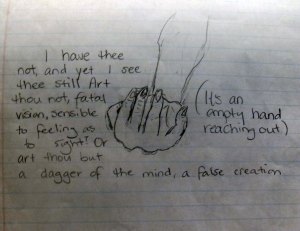 I have thee
not, and yet I see
thee still Art
thou not, fatal
vision, sensible
to feeling as
to sight? Or
art thou but
a dagger of the mind, a false creation
(It's an
empty hand
reaching out)